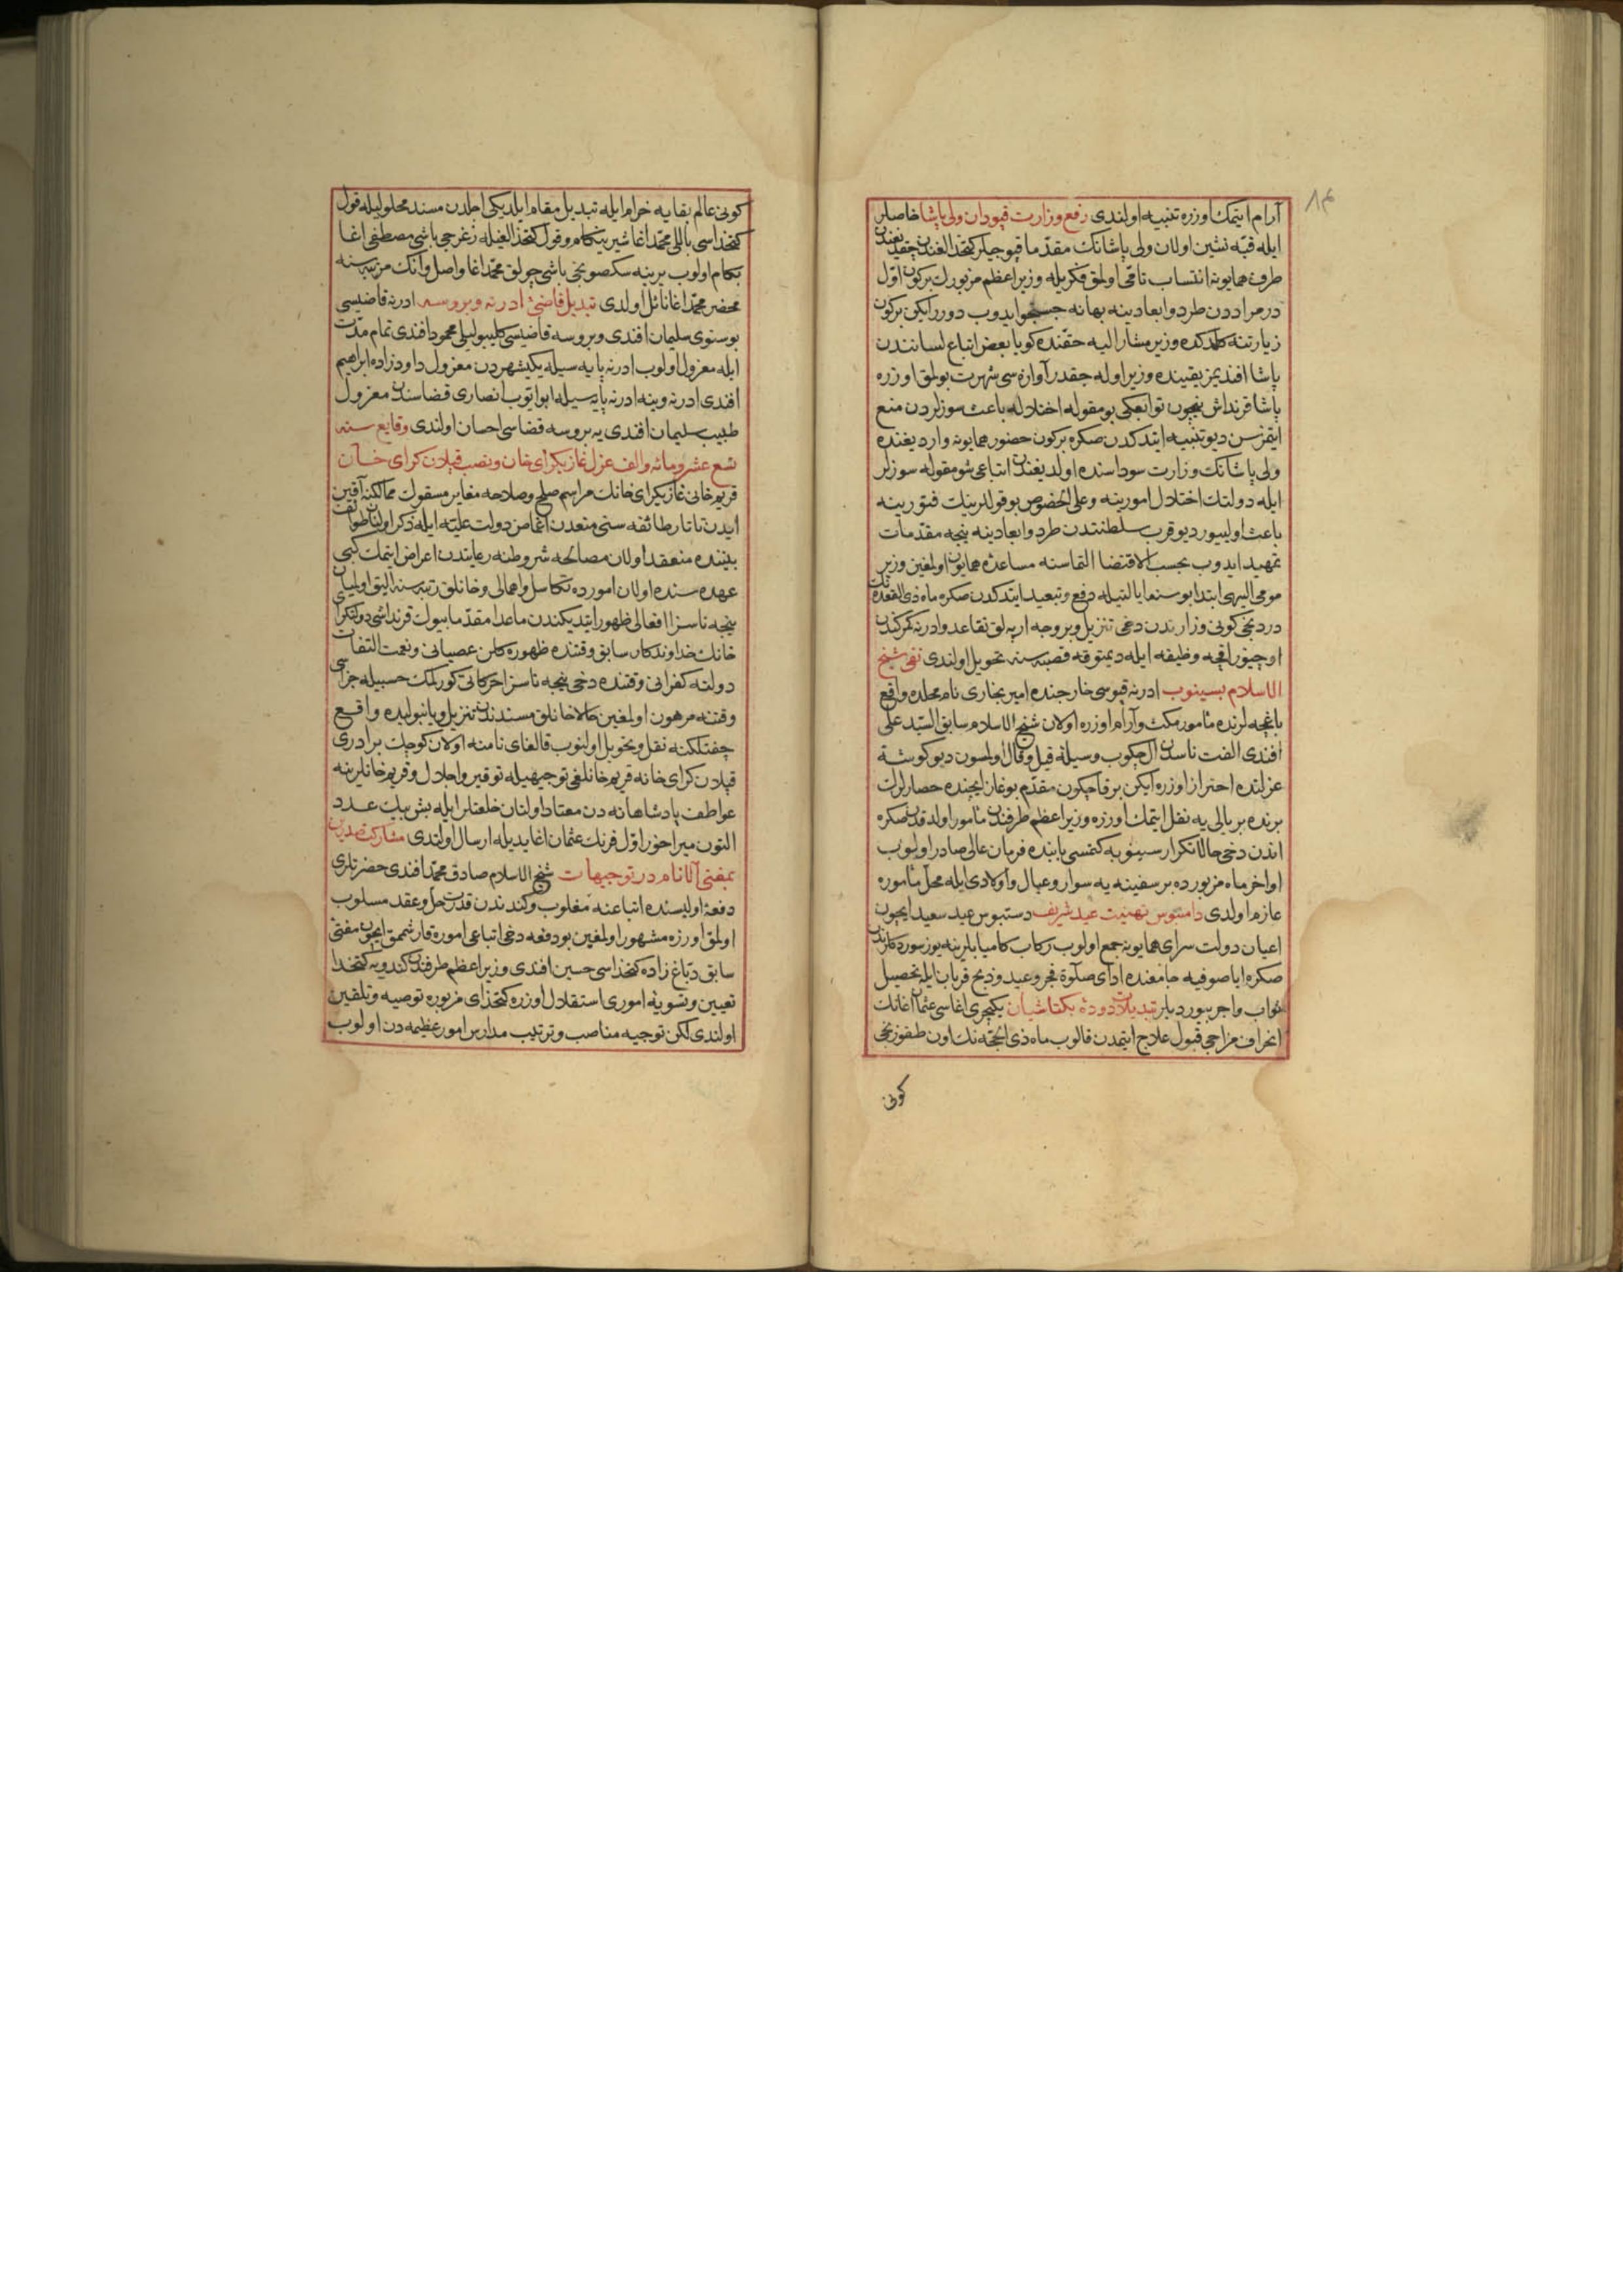 ٨٤
آرام ایتمك اوزره تنبیه اولندی رفع وزارت قپودان ولی پاشا خاصلر
ایله قبّه نشین اولان ولی پاشانك مقدّما قپوجیلر كتخدالغندن چقدیغندن
طرف همایونه انتساب تامّی اولمق فكریله وزیر اعظم مزبورك بركون اوّل
درمراددن طرد و ابعادینه بهانه جستجو ایدوب دورر ایكن بركون
زیارتنه كلدكده وزیر مشار الیه حقنده كویا بعض اتباع لسانندن
پاشا افندیمز یقینده وزیر اوله جقدر آوازه سی شهرت بولمق اوزره
پاشا قرنداش نیچون توابعكی بو مقوله اختلاله باعث سوزلردن منع
ایتمزسن دیو تنبیه ایتدكدن صكره بركون حضور همایونه واردیغنده
ولی پاشانك وزارت سوداسنده اولدیغندن اتباعی شو مقوله سوزلر
ایله دولتك اختلال امورینه وعلی الخصوص بو قوللرینك فتورینه
باعث اولیيور دیو قرب سلطنتدن طرد و ابعادینه نیجه مقدّمات
تمهید ایدوب بحسب الاقتضا التماسنه مساعدۀ همایون اولمغین وزیر
مومی الیهی ابتدا بوسنه ایالتیله دفع و تبعید ایتدكدن صكره ماه ذی القعده نك
دردنجی كونی وزارتدن دخی تنزیل و بر وجه ارپه لق تقاعد وادرنه كمركندن
اوچیوز اقچه وظیفه ایله دیمتوقه قصبه سنه تحویل اولندی نفی شیخ
الاسلام بسینوب ادرنه قپوسی خارجنده امیر بخاری نام محلده واقع
باغچه لرنده مأمور مكث و آرام اوزره اولان شیخ الاسلام سابق السّید علی
افندی الفت ناسدن ال چكوب وسیلۀ قیل وقال اولمسون دیو كوشۀ
عزلتده احتراز اوزره ایكن بر قاچ كون مقدّم بوغاز ایچنده حصارلرك
برنده بر یالی یه نقل ایتمك اوزره وزیر اعظم طرفندن مأمور اولدقدن صكره
اندن دخی حالا تكرار سینوبه كتمسی بابنده فرمان عالی صادر اولوب
اواخر ماه مزبورده بر سفینه یه سوار و عیال و اولادی ایله محلّ مأموره
عازم اولدی دامنبوس تهنیت عید شریف دستبوس عید سعید ایچون
اعیان دولت سرای همایونه جمع اولوب ركاب كامیابلرینه یوز سوردكلرندن
صكره ایاصوفیه جامعنده ادای صلوة فجر وعید وذبح قربان ایله تحصیل
ثواب واجر بیوردیلر تبدیلات دودۀ بكتاشیان یكیچری اغاسی عثمان اغانك
انحراف مزاجی قبول علاج ایتمدن قالوب ماه ذی الحجّه نك اون طقوزنجی
كونی
كونی عالم بقایه خرام ایله تبدیل مقام ایلدیكی اجلدن مسند محلولیله قول
كتخداسی باللی محمّد اغا شیرین كام و قول كتخدالغیله زغرجی باشی مصطفی اغا
بكام اولوب یرینه سكصونجی باشی چولق محمّد اغا واصل و آنك مرتبه سنه
محضر محمّد اغا نائل اولدی تبدیل قاضئ ادرنه و بروسه ادرنه قاضیسی
بوسنوی سلیمان افندی و بروسه قاضیسی كلیبولیلی محمود افندی تمام مدّت
ایله معزول اولوب ادرنه پایه سیله یكیشهردن معزول داودزاده ابراهیم
افندی ادرنه و ینه ادرنه پایه سیله ابوایّوب انصاری قضاسندن معزول
طبیب سلیمان افندی یه بروسه قضاسی احسان اولندی وقایع سنه
تسع عشر ومائه والف عزل غازیكرای خان و نصب قپلان كرای خان
قریم خانی غازیكرای خانك مراسم صلح و صلاحه مغایر مسقو ممالكنه آقین
ایدن تاتار طائفه سنی منعدن اغماض دولت علیّه ایله ذكر اولنان طوائف
بیننده منعقد اولان مصالحه شروطنه رعایتدن اعراض ایتمك كبی
عهده سنده اولان امورده تكاسل و اهمالی و خانلق رتبه سنه الیق اولمیان
نیجه ناسزا افعالی ظهور ایتدیكندن ماعدا مقدّما بیوك قرنداشی دولتكرای
خانك خداوندكار سابق وقتنده ظهوره كلن عصیانی ونعمت التفات
دولته كفرانی وقتنده دخی نیجه ناسزا حركاتی كورلمك حسبیله جزاسی
وقتنه مرهون اولمغین حالا خانلق مسندندن تنزیل و یانبولیده واقع
چفتلكنه نقل و تحویل اولنوب قالغای نامنه اولان كوچك برادری
قپلان كرای خانه قریم خانلغی توجیهیله توقیر و اجلال و قریم خانلرینه
عواطف پادشاهانه دن معتاد اولنان خلعتلر ایله بش بیك عدد
التون میراخور اوّل فرنك عثمان اغا یدیله ارسال اولندی مشاركت صدرین
بمفتئ الانام در توجیهات شیخ الاسلام صادق محمّد افندی حضرتلری
دفعۀ اولیسنده اتباعنه مغلوب و كندندن قدرت حلّ وعقد مسلوب
اولمق اوزره مشهور اولمغین بو دفعه دخی اتباعی اموره قارشمق ایچون مفتئ
سابق دبّاغ زاده كتخداسی حسین افندی وزیر اعظم طرفندن كندویه كتخدا
تعیین و تسویۀ اموری استقلال اوزره كتخدای مزبوره توصیه و تلقین
اولندی لكن توجیه مناصب و ترتیب مدارس امور عظیمه دن اولوب